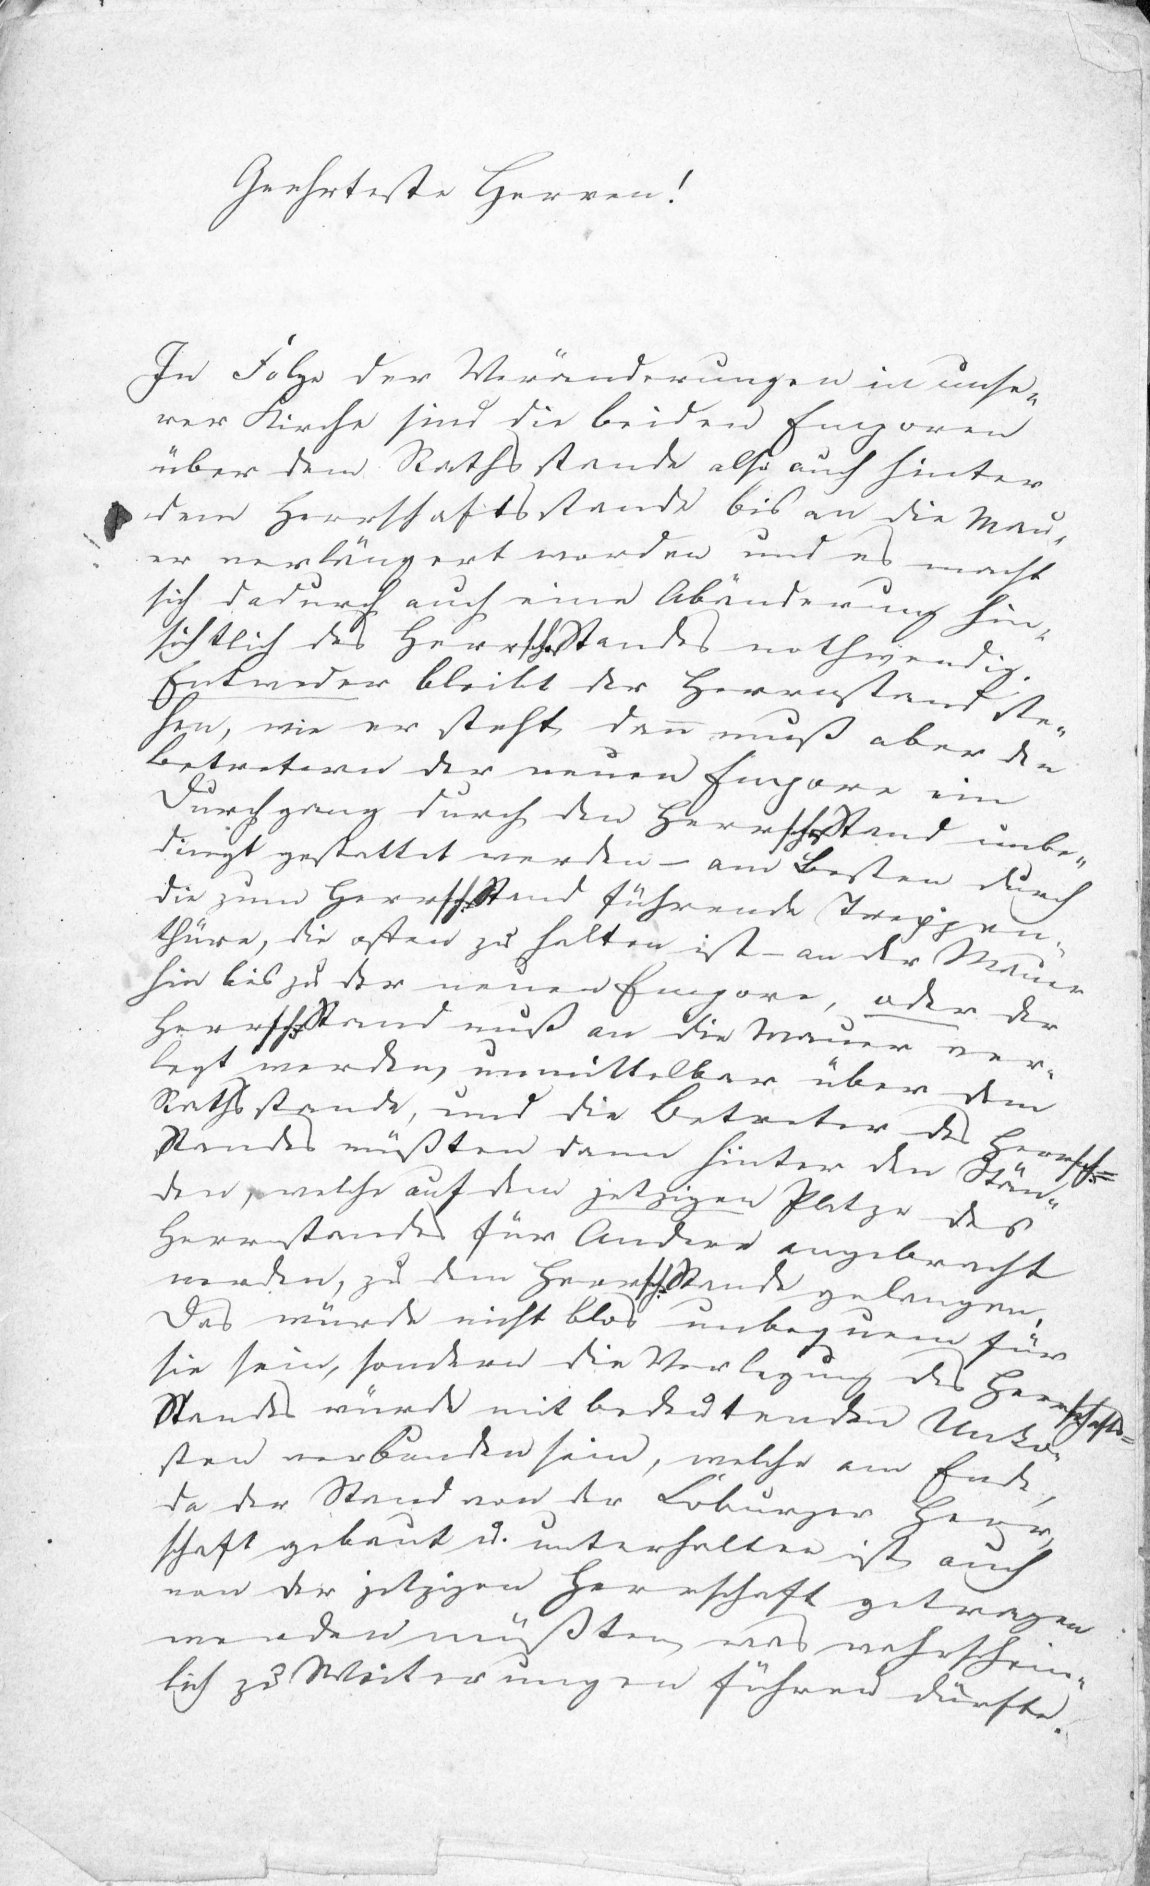 Geehrteste Herren!
In Folge der Veränderungen in unse-
rer Kirche sind die beiden Emporen
über dem Rathsstande also auch hinter
dem Herrschaftsstande bis an die Mau-
er verlängert worden und es macht
sich dadurch auch eine Abänderung hin-
sichtlich des Herrsch. Standes nothwendig.
Entweder bleibt der Herrnstand ste-
hen, wie er steht, dann muß aber den
Betretern der neuen Empore ein
Durchgang durch den Herrsch. Stand unbe-
dingt gestattet werden – am Besten durch
die zum Herrsch. Stand führende Treppen-
thüre, die offen zu halten ist – an der Mauer
hin bis zu der neuen Empore, oder der
Herrsch. Stand muß an die Mauer ver-
legt werden, unmittelbar über dem
Rathsstande, und die Betreter des Herrsch.=
Standes müßten dann hinter den Stän-
den, welche auf dem jetzigen Platze des
Herrnstandes für Andere angebracht
werden, zu dem Herrsch. Stande gelangen.
Das würde nicht blos unbequem für
sie sein, sondern die Verlegung des Herrschafts=
Standes würde mit bedeutenden Unko-
sten verbunden sein, welche am Ende,
da der Stand von der Löburger Herr-
schaft gebaut u. unterhalten ist, auch
von der jetzigen Herrschaft getragen
werden müßten, was wahrschein-
lich zu Weiterungen führen dürfte.